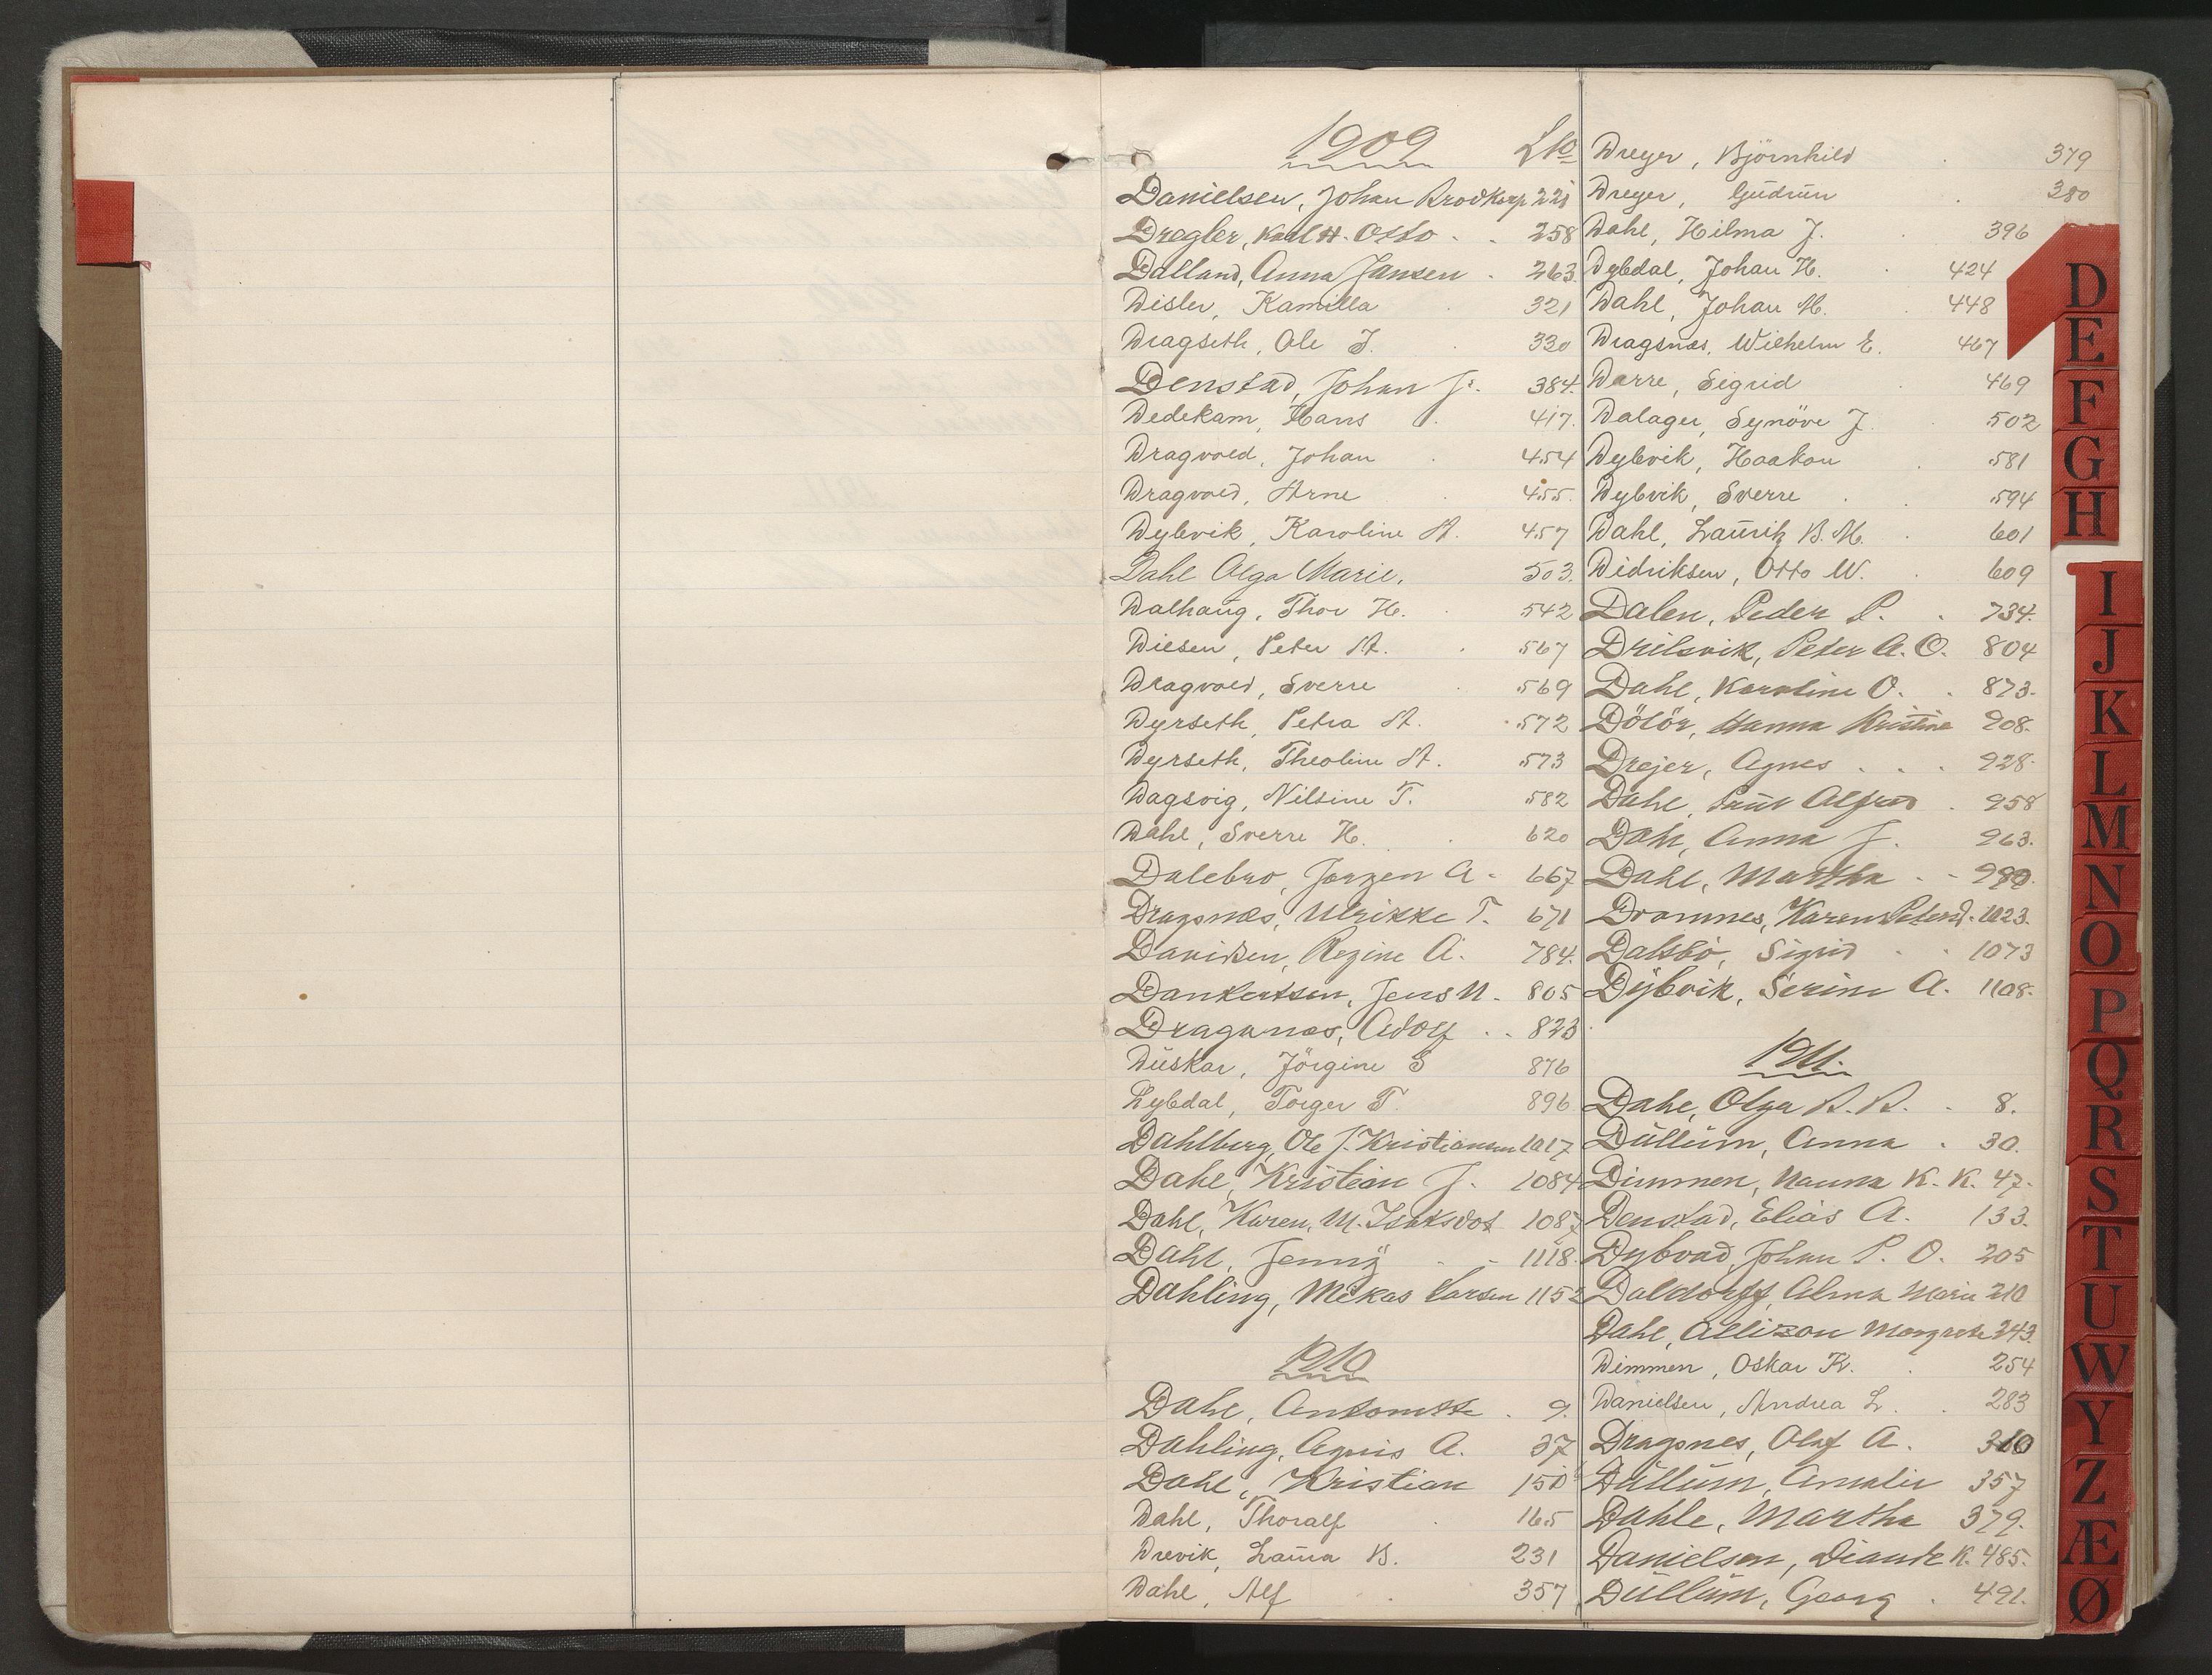 1909 Lno
Danielsen, Johan Brodkorp 221
Dregler, Karl H. Otto 258
Dalland, Anna Jansen 263
Disler, Kamilla 321
Dragseth, Ole J. 330
Denstad, Johan J. 384.
Dedekam, Hans 417.
Dragvold, Johan 454
Dragvold, Arne 455.
Dybvik, Karoline A. 457
Dahl Olga Marie, 503.
Dalhaug, Thor H. 542
Diesen, Peter A. 567
Dragvold, Sverre 569
Dyrseth, Petra A. 572
Dyrseth, Theoline A. 573
Dagsvig, Nilsine T. 582
Dahl, Sverre H. 620
Dalebro, Jørgen A. 667
Dragsnæs, Ulrikke T. 671
Davidsen, Regine A. 784.
Dankertsen, Jens N. 805
Dragsnæs, Adolf 823
Duskar, Jörgine S 876
Dybdal, Torger T. 896
Dahlberg, Ole J. Kristiansen 1017
Dahl, Kristian J. 1084
Dahl, Karen M. Isaksdot 1087
Dahl, Jenny 1118.
Dahling, Mikas Larsen 1152
1910
Dahl, Antonette 9.
Dahling, Agnis A. 37
Dahl, Kristian 150
Dahl, Thoralf 165
Drevik, Laura B. 231
Dahl, Alf 357
Dreyer, Björnhild 379
Dreyer, Gudrun 380
Dahl, Hilma J. 396
Dybdal, Johan H. 424
Dahl, Johan M. 448
Dragsnæs, Wilhelm E. 467
Darre, Sigrid 469
Dalager, Synöve J. 502
Dybvik, Haakon 581
Dybvik, Sverre 594
Dahl, Lauritz B. M. 601
Didriksen, Otto W. 609
Dalen, Peder P. 734.
Drilsvik, Peter A. O. 804
Dahl, Karoline O. 873.
Dölör, Hanna Kristine 908.
Drejer, Agnes 928.
Dahl, Paul Alfred 958
Dahl, Anna J. 963.
Dahl, Martha
Dromnes, Karen Petersd. 1023.
Dalsbö, Sigrid 1073
Dybvik, Serine A. 1108.
1911.
Dahl, Olga B. B. 8.
Dullum, Anna 30.
Dimmen, Nanna K. K. 47.
Denstad, Elias A. 133.
Dybvad, Johan P. O. 205
Daldorff, Alma Marie 210
Dahl, Allizon Margrete 243.
Dimmen, Oskar K. 254
Danielsen, Andrea L. 283
Dragsnes, Olaf A. 310
Dullum, Amalie 357
Dahle, Martha 379.
Danielsen, K. 485.
Dullum, Georg 491.
D
E
F
G
H
I
J
K
L
M
N
O
P
Q
R
S
T
U
W
Y
Z
Æ
Ø